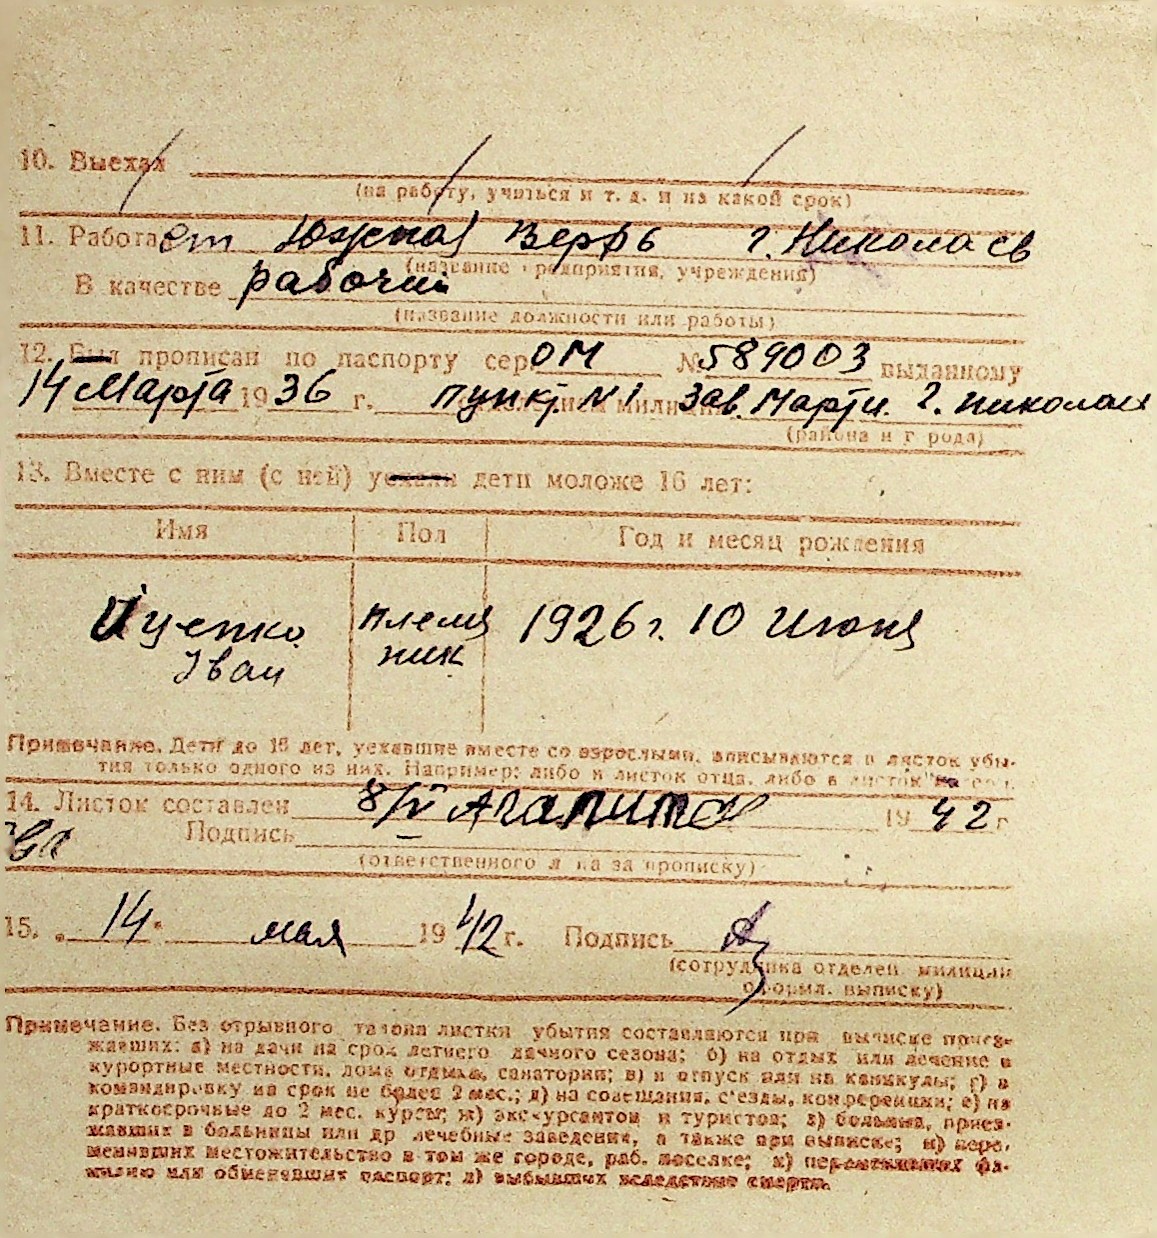 10. Выехал
(на работу, учиться и т. д. и на какой срок)
11. Работает Южная Верфь г. Николаев
(название предприятия, учреждения)
В качестве рабочий
(название должности или работы)
12. Был прописан по паспорту сер ОМ № 589003 выданному
14 Марта 1936 г. пункт. N 1 зав. Марти. г. Николаев
(района и г рода)
13. Вместе с ним (с ней) уехали дети моложе 16 лет:
Имя Пол Год и месяц рождения
Иуенко племя 1926 г. 10 Июня
Iван ник
Примечание. Дети до 16 лет, уехавшие вместе со взрослыми, вписываются в листок убы-
тия только одного из них. Например: либо в листок отца, либо в листок
14. Листок составлен 8/V 1942 г
Подпись
(ответственного л ца за прописку)
15. 14 мая 1942 г. Подпись
(сотрудника отделен милиции
оформл. выписку)
Примечание. Без отрывного талона листки убытия составляются при выписке приез-
жавших: а) на дачи на срок летнего дачного сезона; б) на отдых или лечение в
курортные местности, дома отдыха, санатории; в) в отпуск или на каникулы; г) в
командировку на срок не более 2 мес.; д) на совещания, с'езды, конференции; е) на
краткосрочные до 2 мес. курсы; ж) экскурсантов и туристов; з) больных, приез-
жавших в больницы или др лечебные заведения, а также при выписке; и) пере-
менивших местожительство в том же городе, раб. поселке; к) переменивших фа-
милию или обменявших паспорт; л) выбывших вследствие смерти.